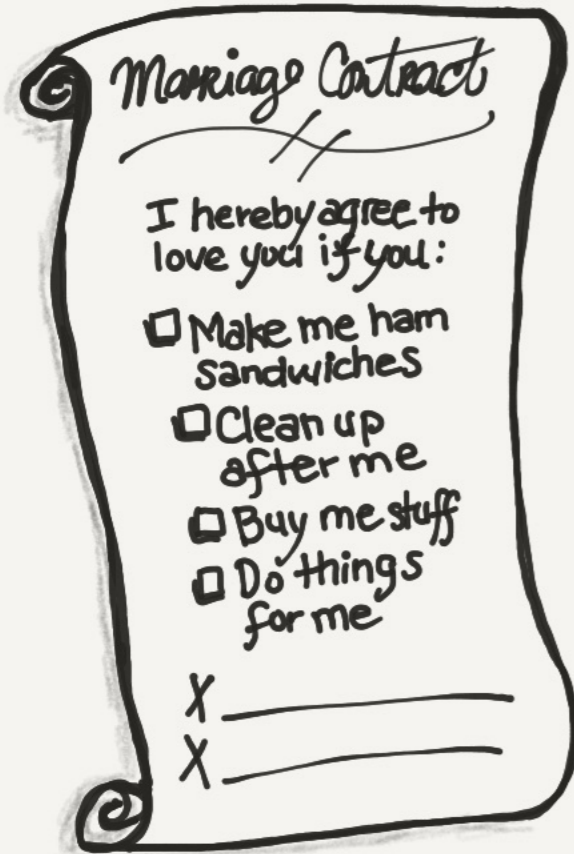 Marriage Contract
I hereby agree to
love you if you:
Make me ham
sandwiches
Clean up
after me
Buy me stuff
Do things
for me
X
X